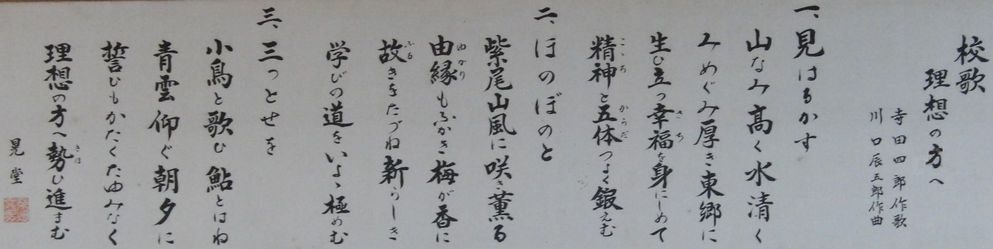 校歌
理想の方へ
寺田四郎作歌
川口辰五郎作曲
一、見はるかす
山なみ高く水清く
みめぐみ厚き東郷に
生ひ立つ幸福を身にしめて
さち
精神と五体つよく鍛えむ
こゝろ からだ
二、ほのぼのと
紫尾山風に咲き薫る
由縁もふかき梅が香に
ゆかり
故きをたづね新らしき
ふる
学びの道をいよゝ極めむ
三、三つとせを
小鳥と歌ひ鮎とはね
青雲仰ぐ朝夕に
誓ひもかたくたゆみなく
理想の方へ勢ひ進まむ
きほ
晃堂